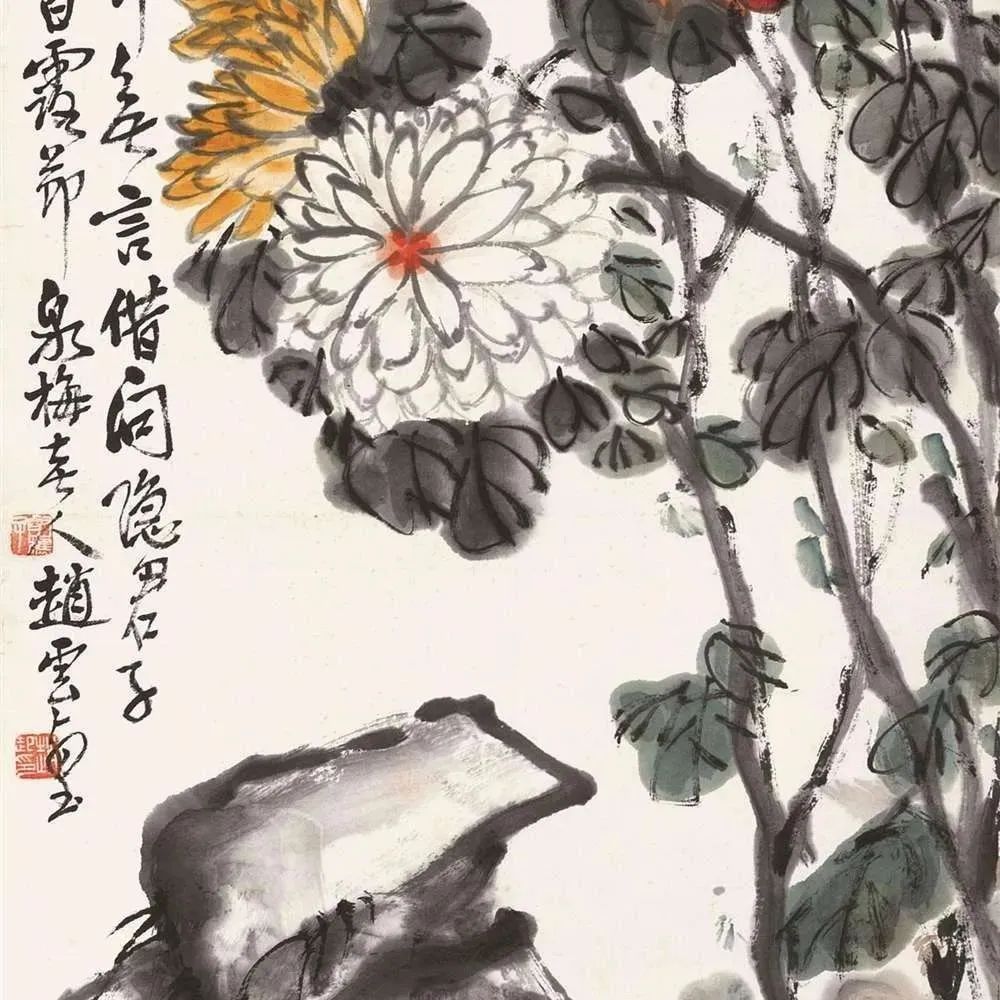 無言借問隱君子
白露節泉梅老人趙雲壑